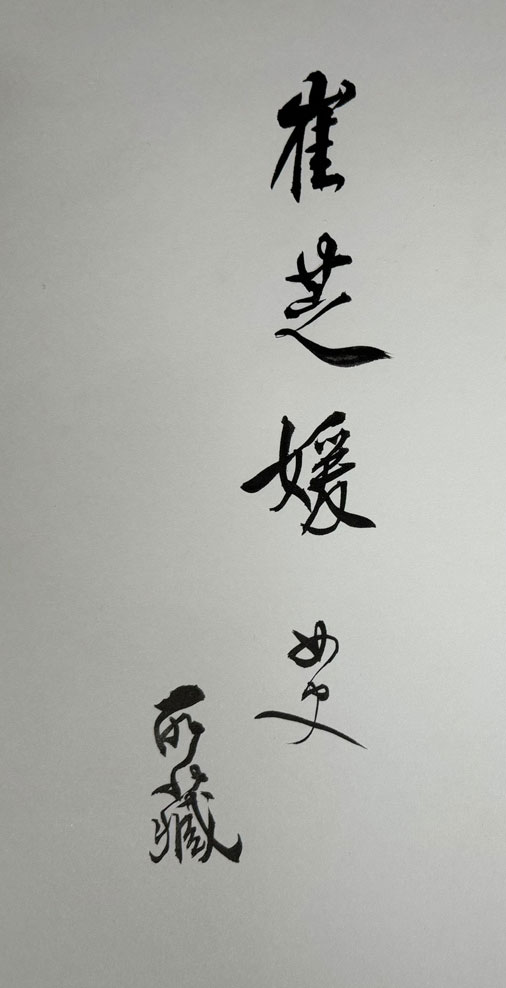 崔芝媛女史
所藏